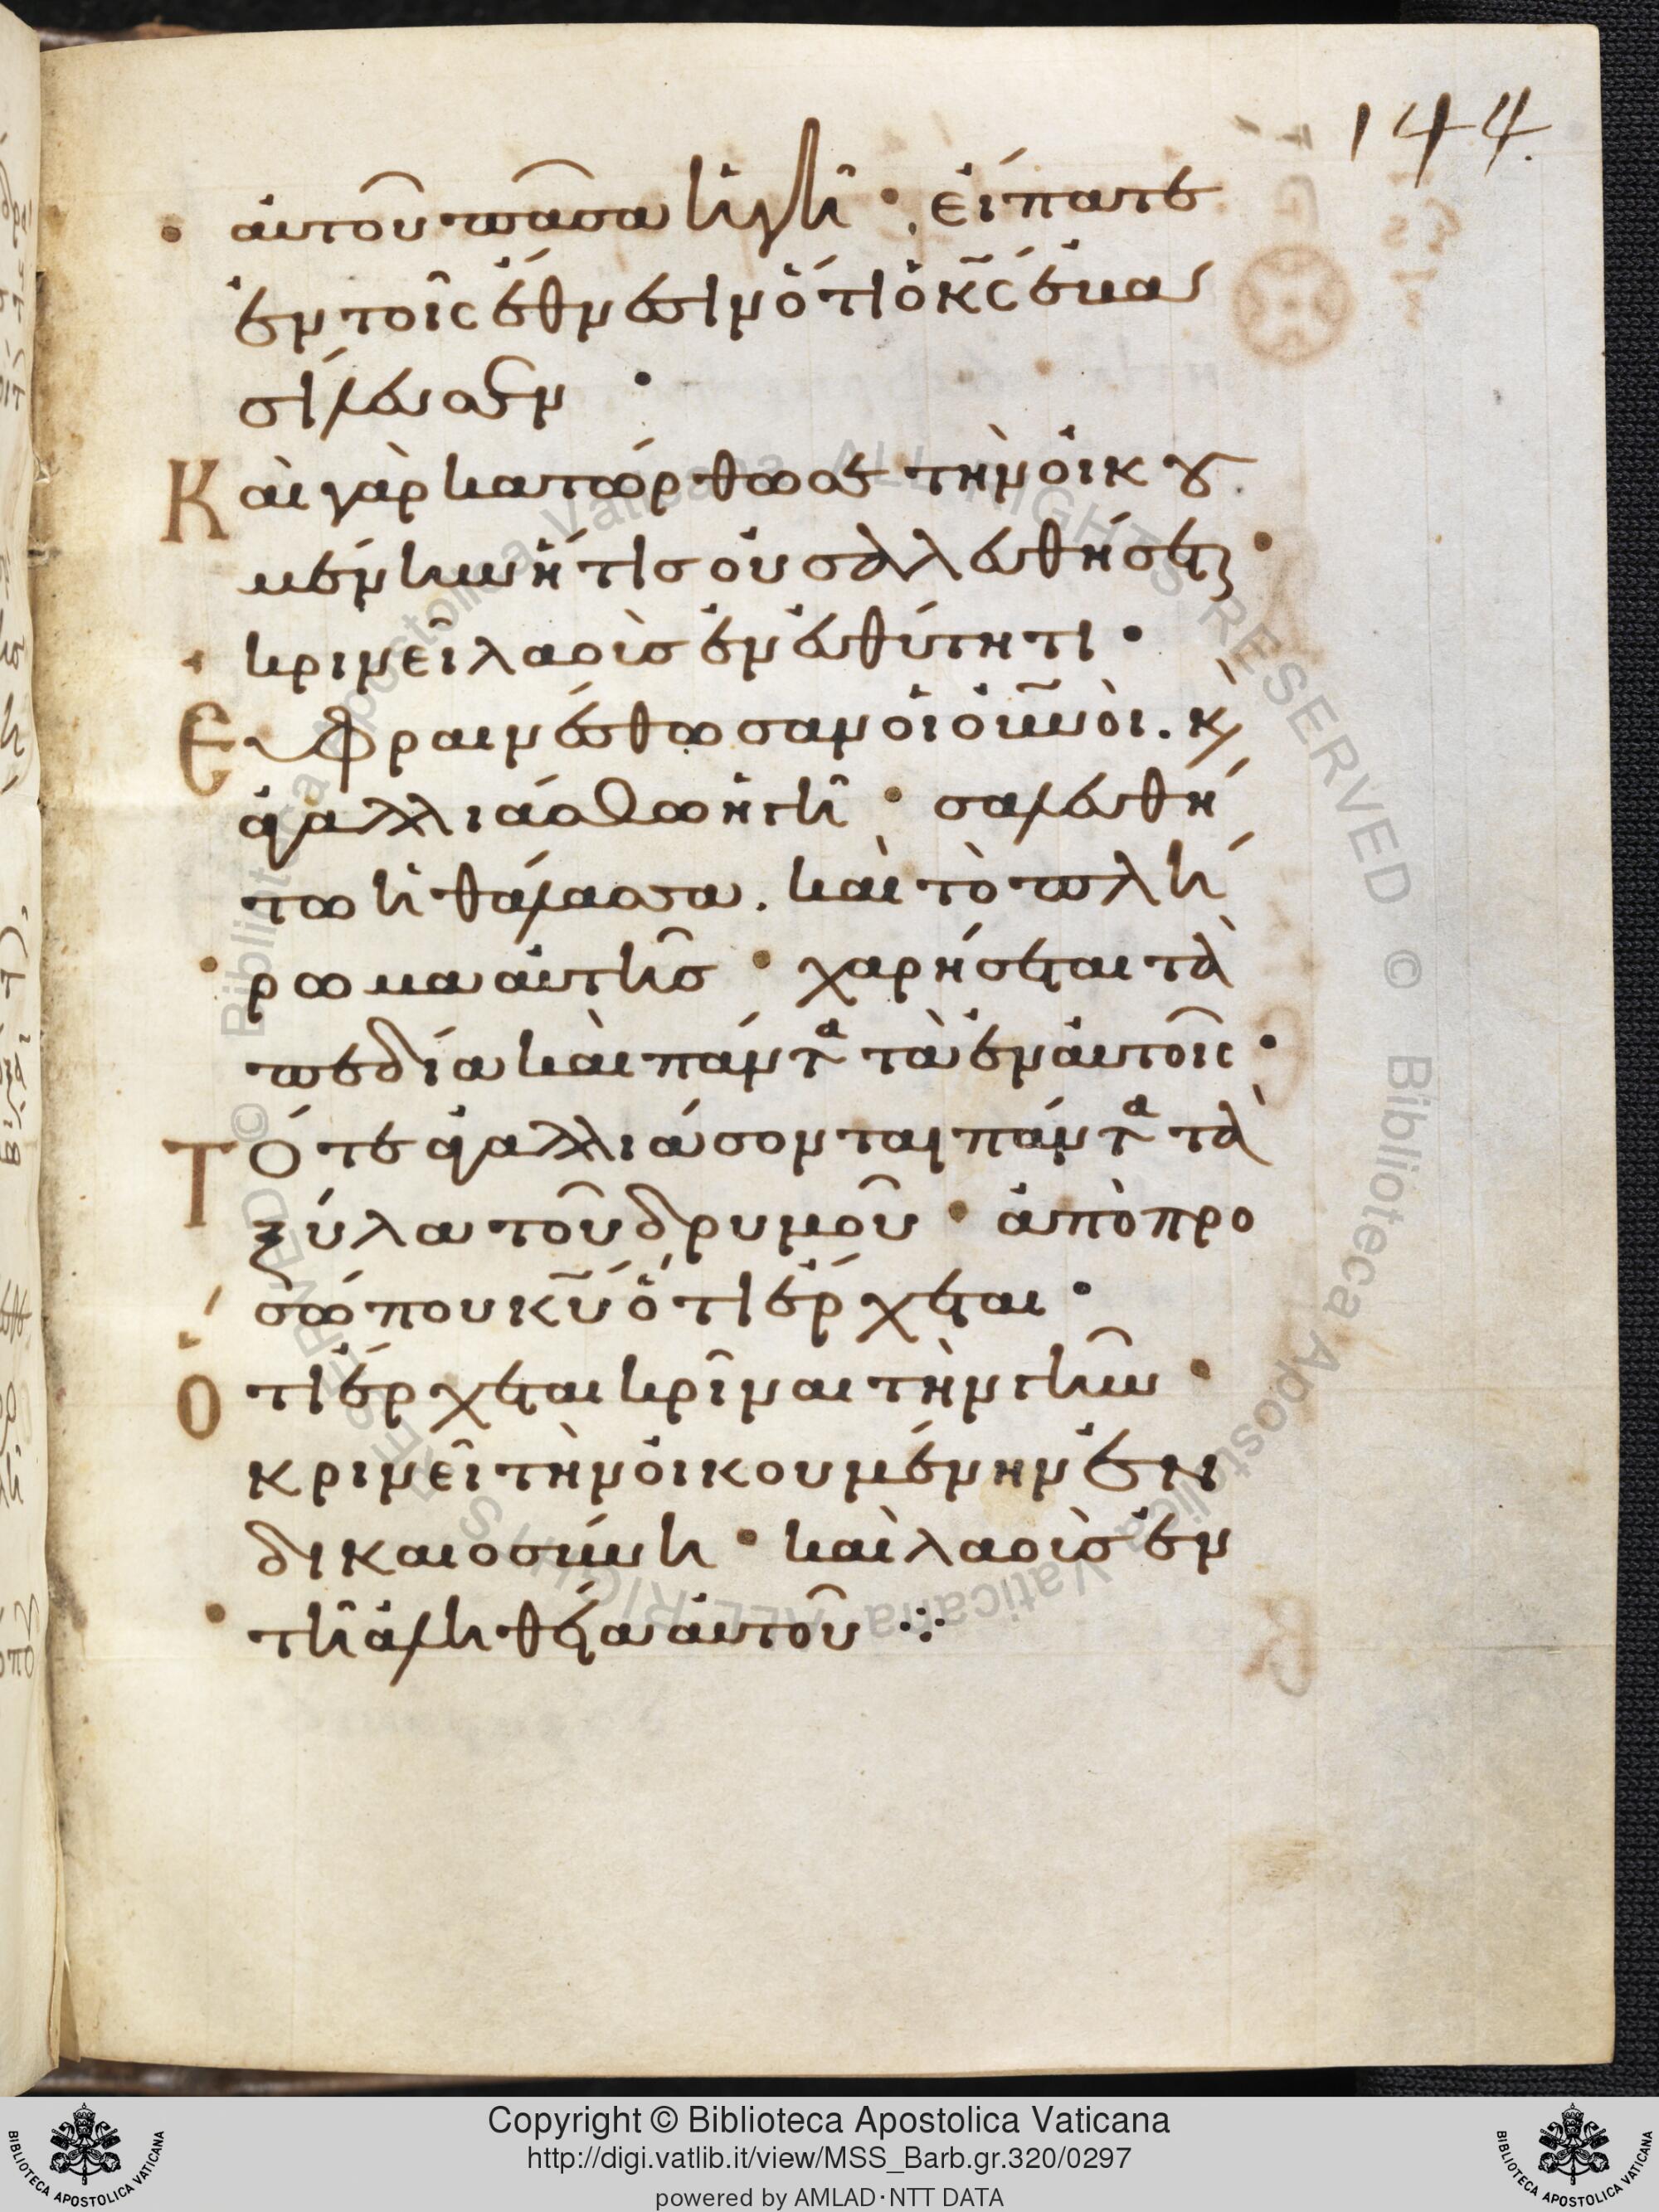 144.
αὐτοῦ πᾶσα ἡ γῆ · εἴπατε
ἐν τοῖς ἔθνεσιν ὅτι ὁ κ̅ς̅ ἐβα
σίλευσεν ·
Καὶ γὰρ κατώρθωσε τὴν οἰκου
μένην ἥτις οὐ σαλευθήσεται ·
κρινεῖ λαοὺς ἐν εὐθύτητι ·
Εὐφραινέσθωσαν οἱ οὐ̅νοὶ . κ̀
ἀγαλλιάσθω ἡ γῆ · σαλευθή
τω ἡ θάλασσα . καὶ τὸ πλή
ρωμα αὐτῆς · χαρήσεται τὰ
πεδία καὶ πάντα τὰ ἐν αὐτοῖς ·
Τότε ἀγαλλιάσονται πάντα τὰ
ξύλα τοῦ δρυμοῦ · ἀπὸ προ
σώπου κ̅υ̅ ὅτι ἔρχεται ·
Ὅτι ἔρχεται κρῖναι τὴν γῆν ·
κρινεῖ τὴν οἰκουμένην ἐν
δικαιοσύνη · καὶ λαοὺς ἐν
τῆ ἀληθεία αὐτοῦ ⁘
Copyright © Biblioteca Apostolica Vaticana
http://digi.vatlib.it/view/MSS_Barb.gr.320/0297
powered by AMLAD·NTT DATA
BIBLIOTECA APOSTOLICA VATICANA
BIBLIOTECA APOSTOLICA VATICANA
© Biblioteca Apostolica Vaticana ALL RIGHTS RESERVED © Biblioteca Apostolica Vaticana ALL RIGHTS RESERVED